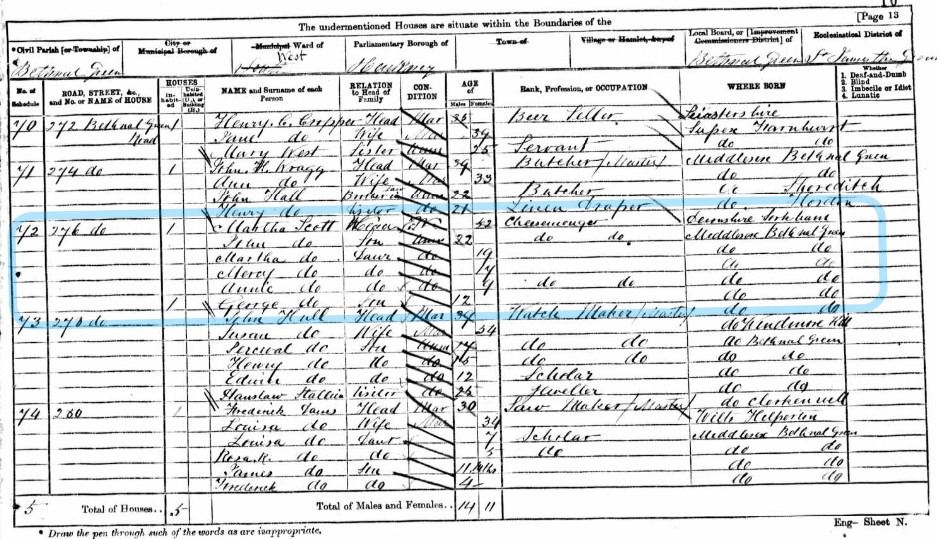 The undermentioned Houses are situate within the Boundaries of the
[Page 13
Civil Parish [or Township] of
City or Municipal Borough of
Municipal Ward of
West
Parliamentary Borough of
Town of
Village or Hamlet, &c., of
Local Board, or [Improvement Commissioners District] of
Ecclesiastical District of
Bethnal Green
Hackney
Bethnal Green
No. of Schedule
ROAD, STREET, &c., and No. or NAME of HOUSE
HOUSES
Inhabited
Uninhabited (U.), or Building (B.)
NAME and Surname of each Person
RELATION to Head of Family
CONDITION
AGE of
Males
Females
Rank, Profession, or OCCUPATION
WHERE BORN
Whether
1. Deaf-and-Dumb
2. Blind
3. Imbecile or Idiot
4. Lunatic
70 272 Bethnal Green Road 1 Henry C. Cropper Head Mar Beer Seller Leicestershire
Jane do Wife 39
Mary West Sister 25 Servant do do
71 274 do 1 John H. Wragg Head Mar 39 Butcher (Master) Middlesex Bethnal Green
Ann do Wife 33 do do
John Hall Brother in law 22 Butcher do Shoreditch
Henry do Visitor do 21 Linen Draper do Hoxton
72 276 do 1 Martha Scott 42 Cheesemonger Devonshire
John do Son 22 do do Middlesex Bethnal Green
Martha do Daur do 19 do do
Mercy do do do do do
Annie do do do 9 do do do do
George do Son 12 do do
73 1 John Hull Head Mar 34 Watch Maker (Master) do do
Susan do Wife 34 do
Percival do Son do do do Bethnal Green
Henry do do do do do do do
Edwin do do do 12 Scholar do do
Visitor do 25 Jeweller do do
74 280 1 Frederick James Head Mar 30 Saw Maker (Master) do Clerkenwell
Louisa do Wife 34 Wilts Hilperton
Louisa do Daur 7 Scholar Middlesex Bethnal Green
Rosa K. do do 5 do do do
James do Son 11 Mths do do
Frederick do do 4 do do
5 Total of Houses.. 5 Total of Males and Females.. 14 11
* Draw the pen through such of the words as are inappropriate.
Eng– Sheet N.